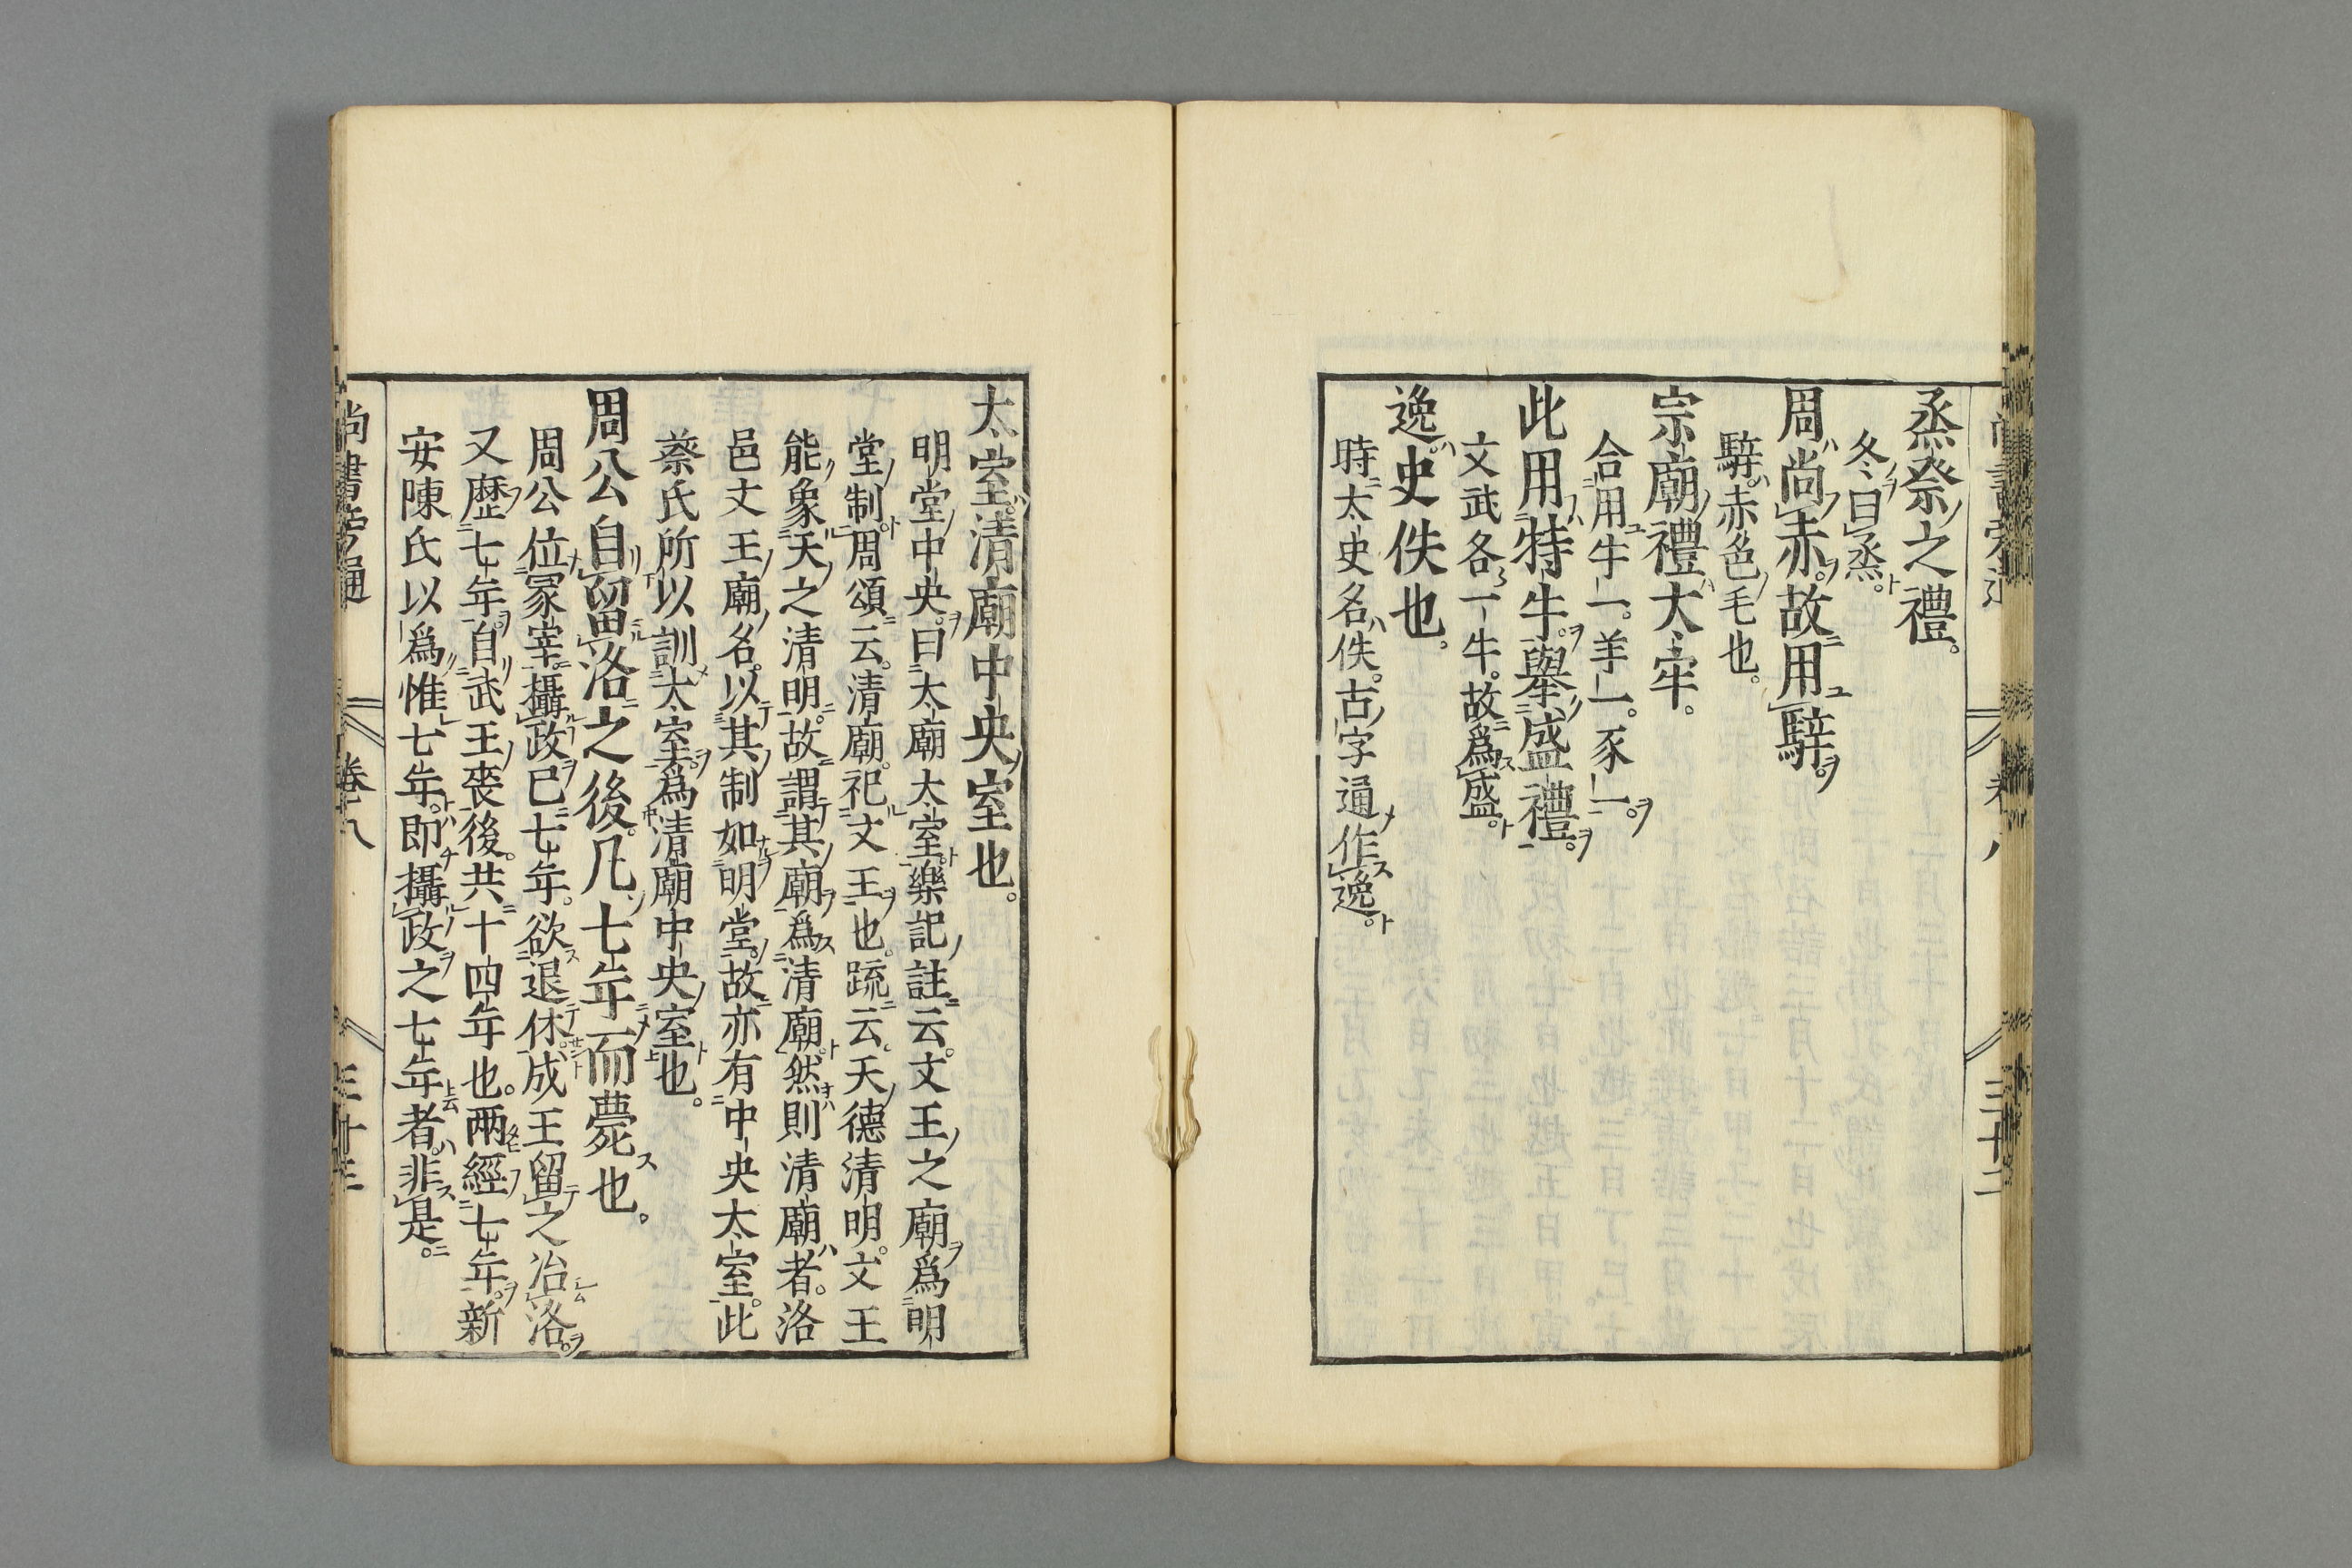 烝祭之禮。
冬曰烝。
周尚赤。故用騂。
騂。赤色毛也。
宗廟禮大牢。
合用牛一。羊一。豕一。
此用特牛。舉盛禮。
文武各一牛。故爲盛。
逸。史佚也。
時太史名佚。古字通作逸。
太室。清廟中央室也。
明堂中央。曰太廟太室。樂記註云。文王之廟爲明
堂制。周頌云。清廟。祀文王也。疏云。天德清明。文王
能象天之清明。故謂其廟爲清廟。然則清廟者。洛
邑文王廟名。以其制如明堂。故亦有中央太室。此
蔡氏所以訓太室。爲清廟中央室也。
周公自留洛之後。凡七年而薨也。
周公位冢宰。攝政已七年。欲退休。成王留之冶洛。
又歷七年。自武王喪後。共十四年也。兩經七年。新
安陳氏以爲惟七年。即攝政之七年者。非是。
尚書旁通 卷八 三十三